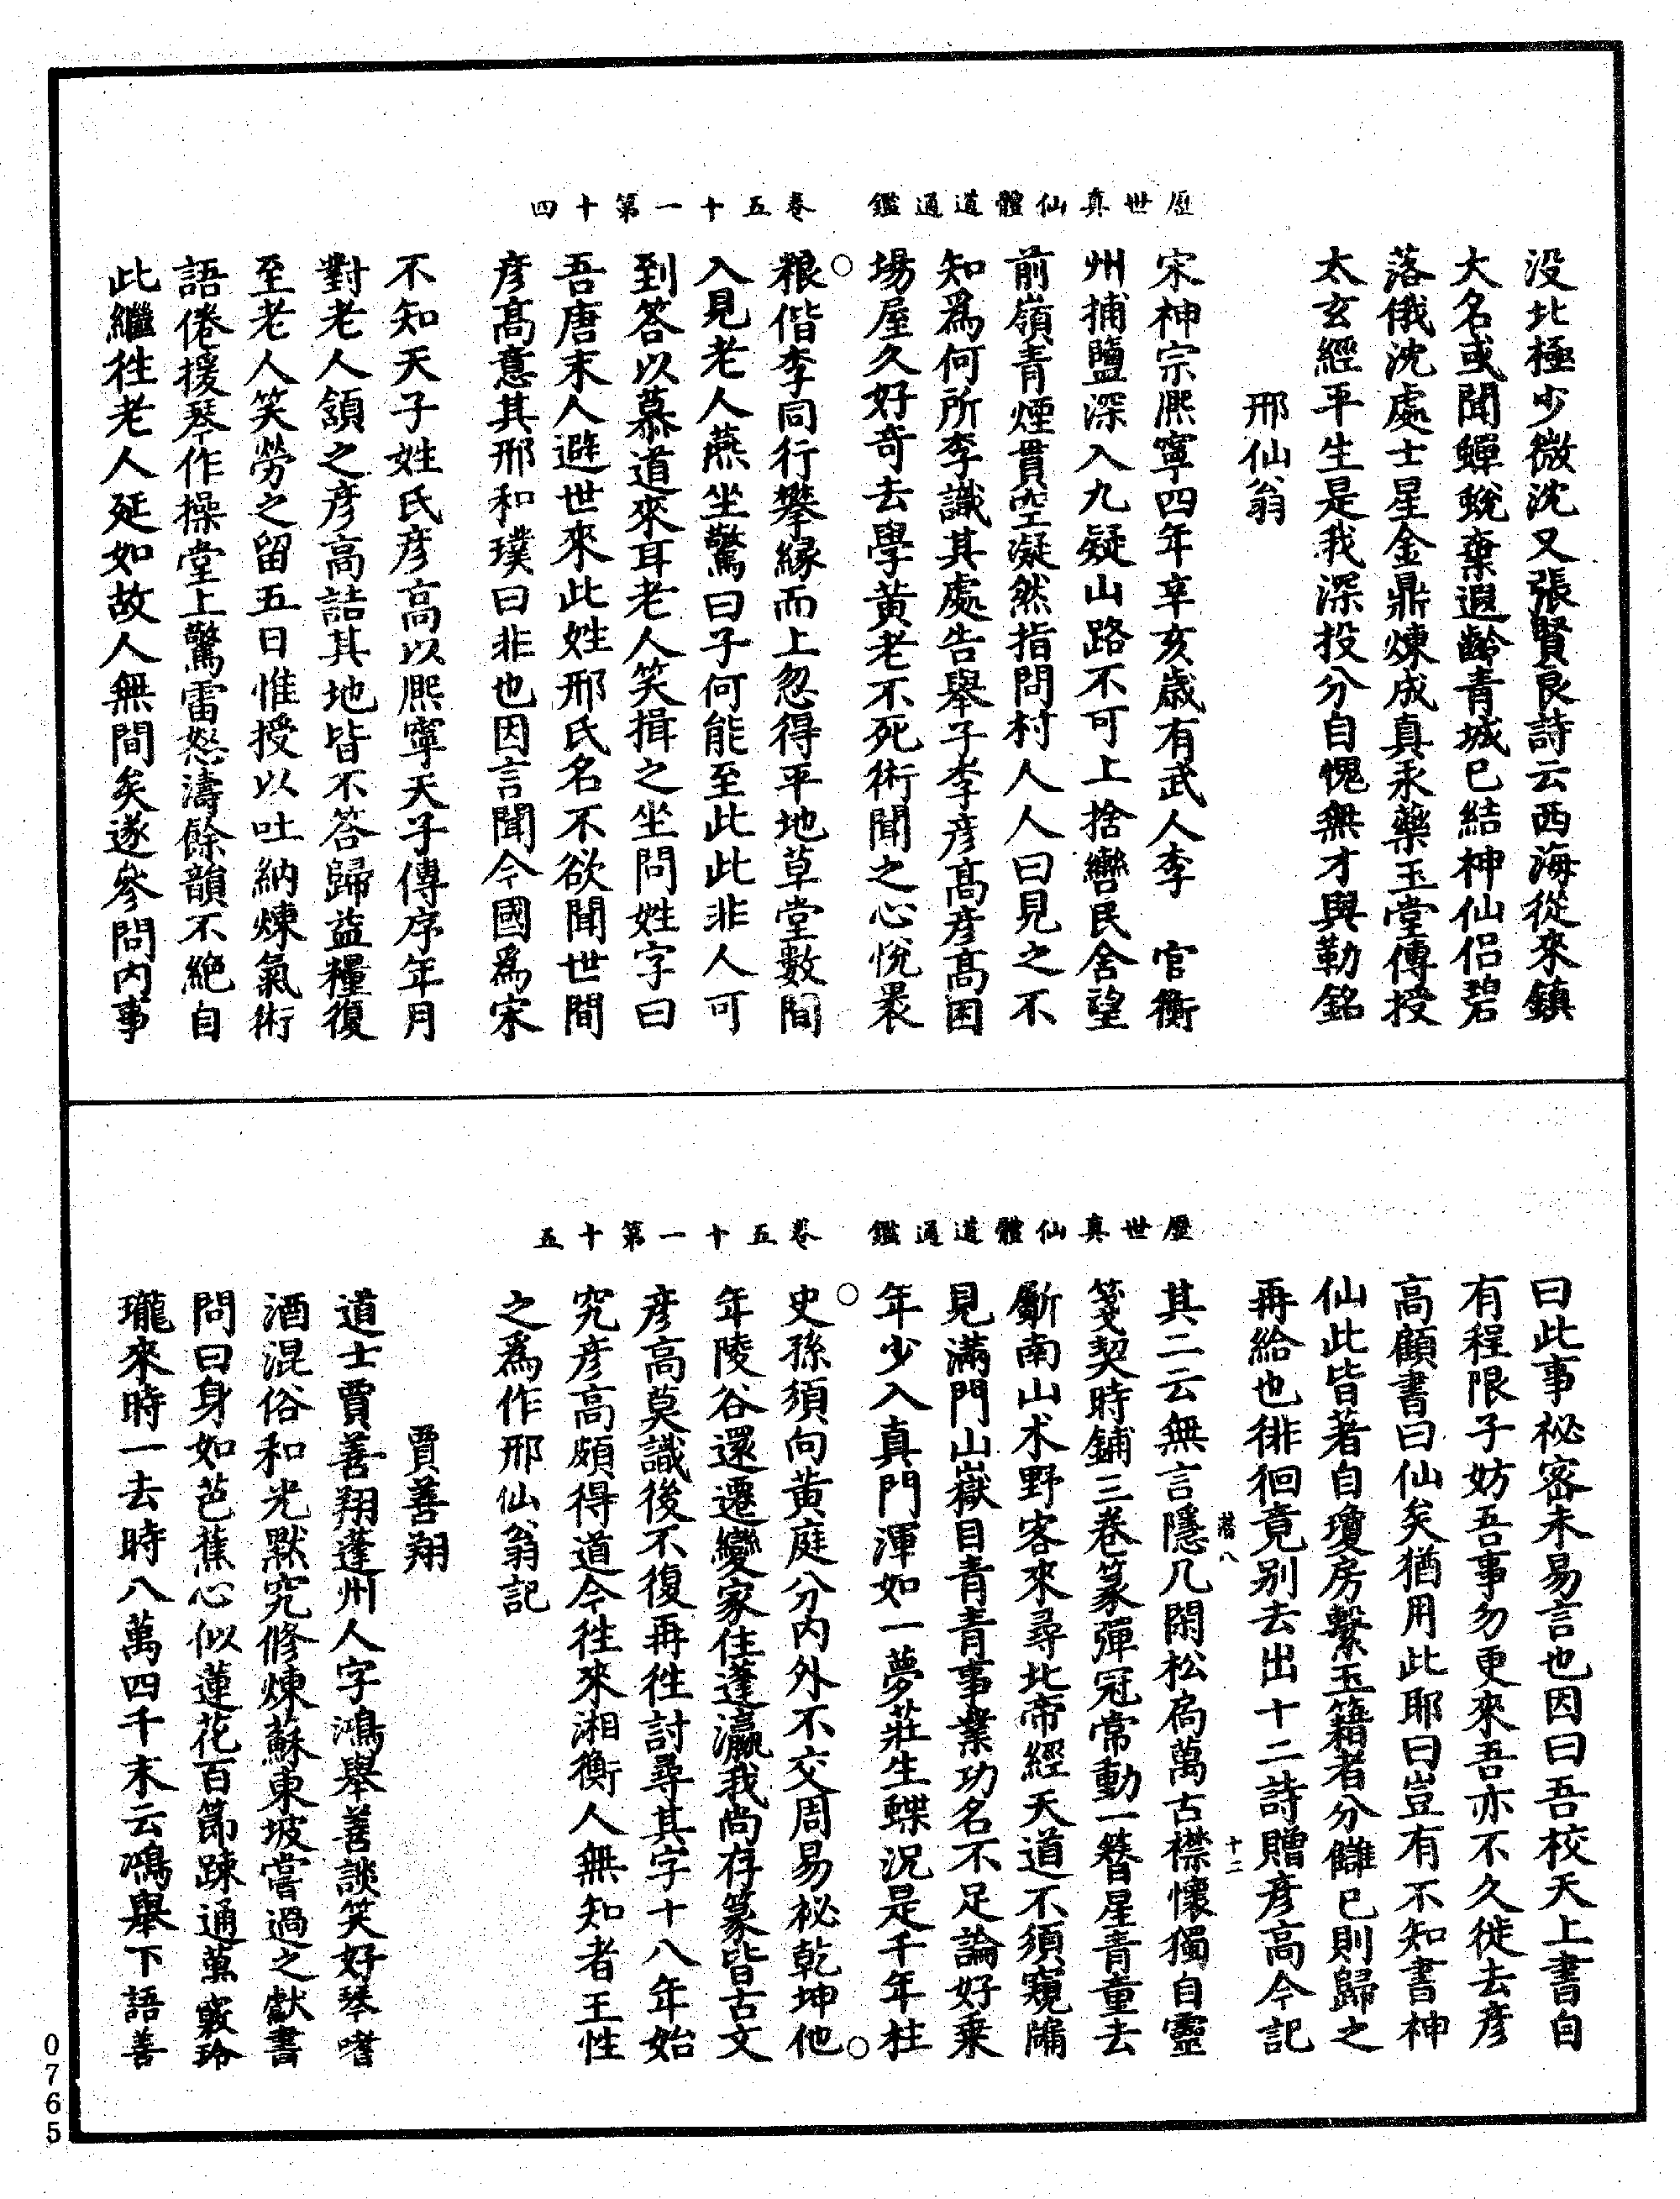 歷世真仙體道通鑑　卷五十一第十四
没北極少微沈又張賢良詩云西海從來鎮
大名或聞蟬蛻棄遐齡青城已結神仙侣碧
落俄沈處士星金鼎煉成真汞藥玉堂傳授
太玄經平生是我深投分自愧無才與勒銘
邢仙翁
宋神宗熙寧四年辛亥歲有武人李　官衡
州捕鹽深入九疑山路不可上捨轡民舍望
前嶺青煙貫空凝然指問村人人曰見之不
知爲何所李識其處告舉子李彦高彦高困
場屋久好奇去學黄老不死術聞之心悅裹
粮偕李同行攀緣而上忽得平地草堂數間
入見老人燕坐驚曰子何能至此此非人可
到答以慕道來耳老人笑揖之坐問姓字曰
吾唐末人避世來此姓邢氏名不欲聞世間
彦高意其邢和璞曰非也因言聞今國爲宋
不知天子姓氏彦高以熙寧天子傳序年月
對老人頷之彦高詰其地皆不答歸益糧復
至老人笑勞之留五日惟授以吐納煉氣術
語倦援琴作操堂上驚雷怒濤餘韻不絶自
此繼往老人延如故人無間矣遂參問内事
歷世真仙體道通鑑　卷五十一第十五
曰此事祕密未易言也因曰吾校天上書自
有程限子妨吾事勿更來吾亦不久徙去彦
高顧書曰仙矣猶用此耶曰豈有不知書神
仙此皆著自瓊房繫玉籍者分讎已則歸之
再給也徘徊竟别去出十二詩贈彦高今記
落八　十二
其二云無言隱几閑松扃萬古襟懷獨自靈
箋契時鋪三卷篆彈冠常動一簪星青童去
斸南山朮野客來尋北帝經天道不須窺牖
見滿門山嶽目青青事業功名不足論好乗
年少入真門渾如一夢莊生蝶况是千年柱
史孫須向黄庭分内外不交周易祕乾坤他
年陵谷還遷變家住蓬瀛我尚存篆皆古文
彦高莫識後不復再往討尋其字十八年始
究彦高頗得道今往來湘衡人無知者王性
之爲作邢仙翁記
賈善翔
道士賈善翔蓬州人字鴻舉善談笑好琴嗜
酒混俗和光默究修煉蘇東坡嘗過之獻書
問曰身如芭蕉心似蓮花百節踈通萬竅玲
瓏來時一去時八萬四千末云鴻舉下語善
0765